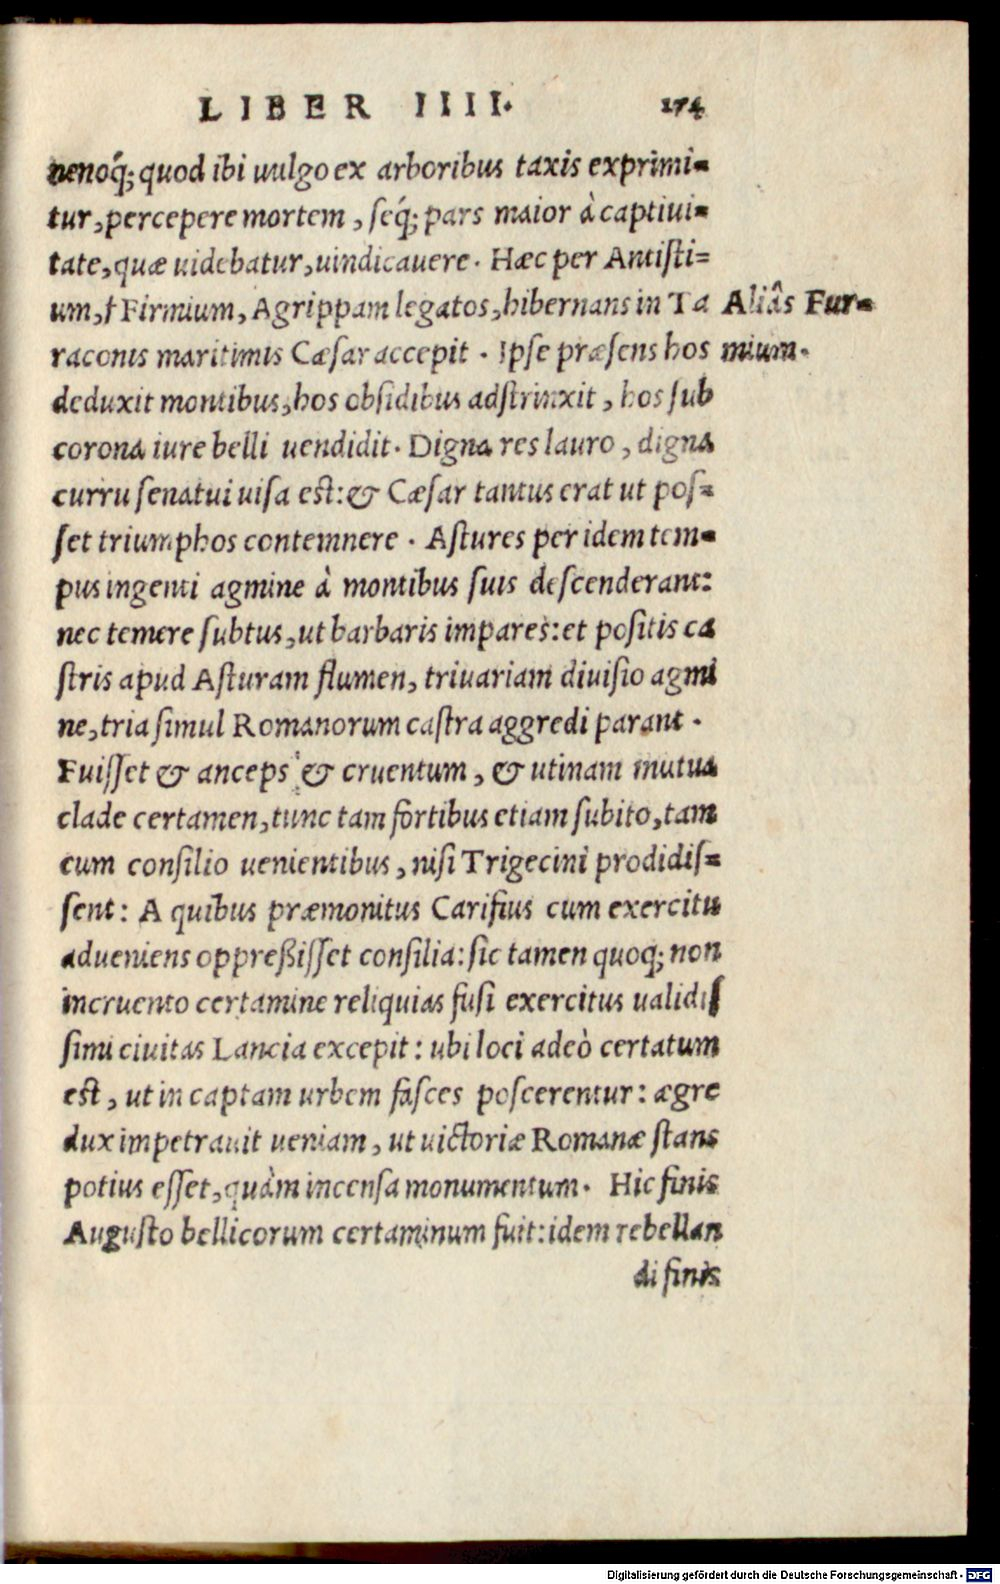 LIBER IIII. 174
nenoq́; quod ibi uulgo ex arboribus taxis exprimi-
tur, percepere mortem, seq́; pars maior à captiui-
tate, quæ uidebatur, uindicauere. Hæc per Antisti-
um, † Firmium, Agrippam legatos, hibernans in Ta
raconis maritimis Cæsar accepit. Ipse præsens hos
deduxit montibus, hos obsidibus adstrinxit, hos sub
corona iure belli uendidit. Digna res lauro, digna
curru senatui uisa est: & Cæsar tantus erat ut pos-
set triumphos contemnere. Astures per idem tem-
pus ingenti agmine à montibus suis descenderant:
nec temere subtus, ut barbaris impares: et positis ca
stris apud Asturam flumen, triuariam diuisio agmi
ne, tria simul Romanorum castra aggredi parant.
Fuisset & anceps & cruentum, & utinam mutua
clade certamen, tunc tam fortibus etiam subito, tam
cum consilio uenientibus, nisi Trigecini prodidis-
sent: A quibus præmonitus Carisius cum exercitu
adueniens oppreßisset consilia: sic tamen quoq; non
incruento certamine reliquias fusi exercitus ualidis
simi ciuitas Lancia excepit: ubi loci adeò certatum
est, ut in captam urbem fasces poscerentur: ægre
dux impetrauit ueniam, ut uictoriæ Romanæ stans
potius esset, quàm incensa monumentum. Hic finis
Augusto bellicorum certaminum fuit: idem rebellan
di finis
Aliâs Fur-
mium.
Digitalisierung gefördert durch die Deutsche Forschungsgemeinschaft - DFG